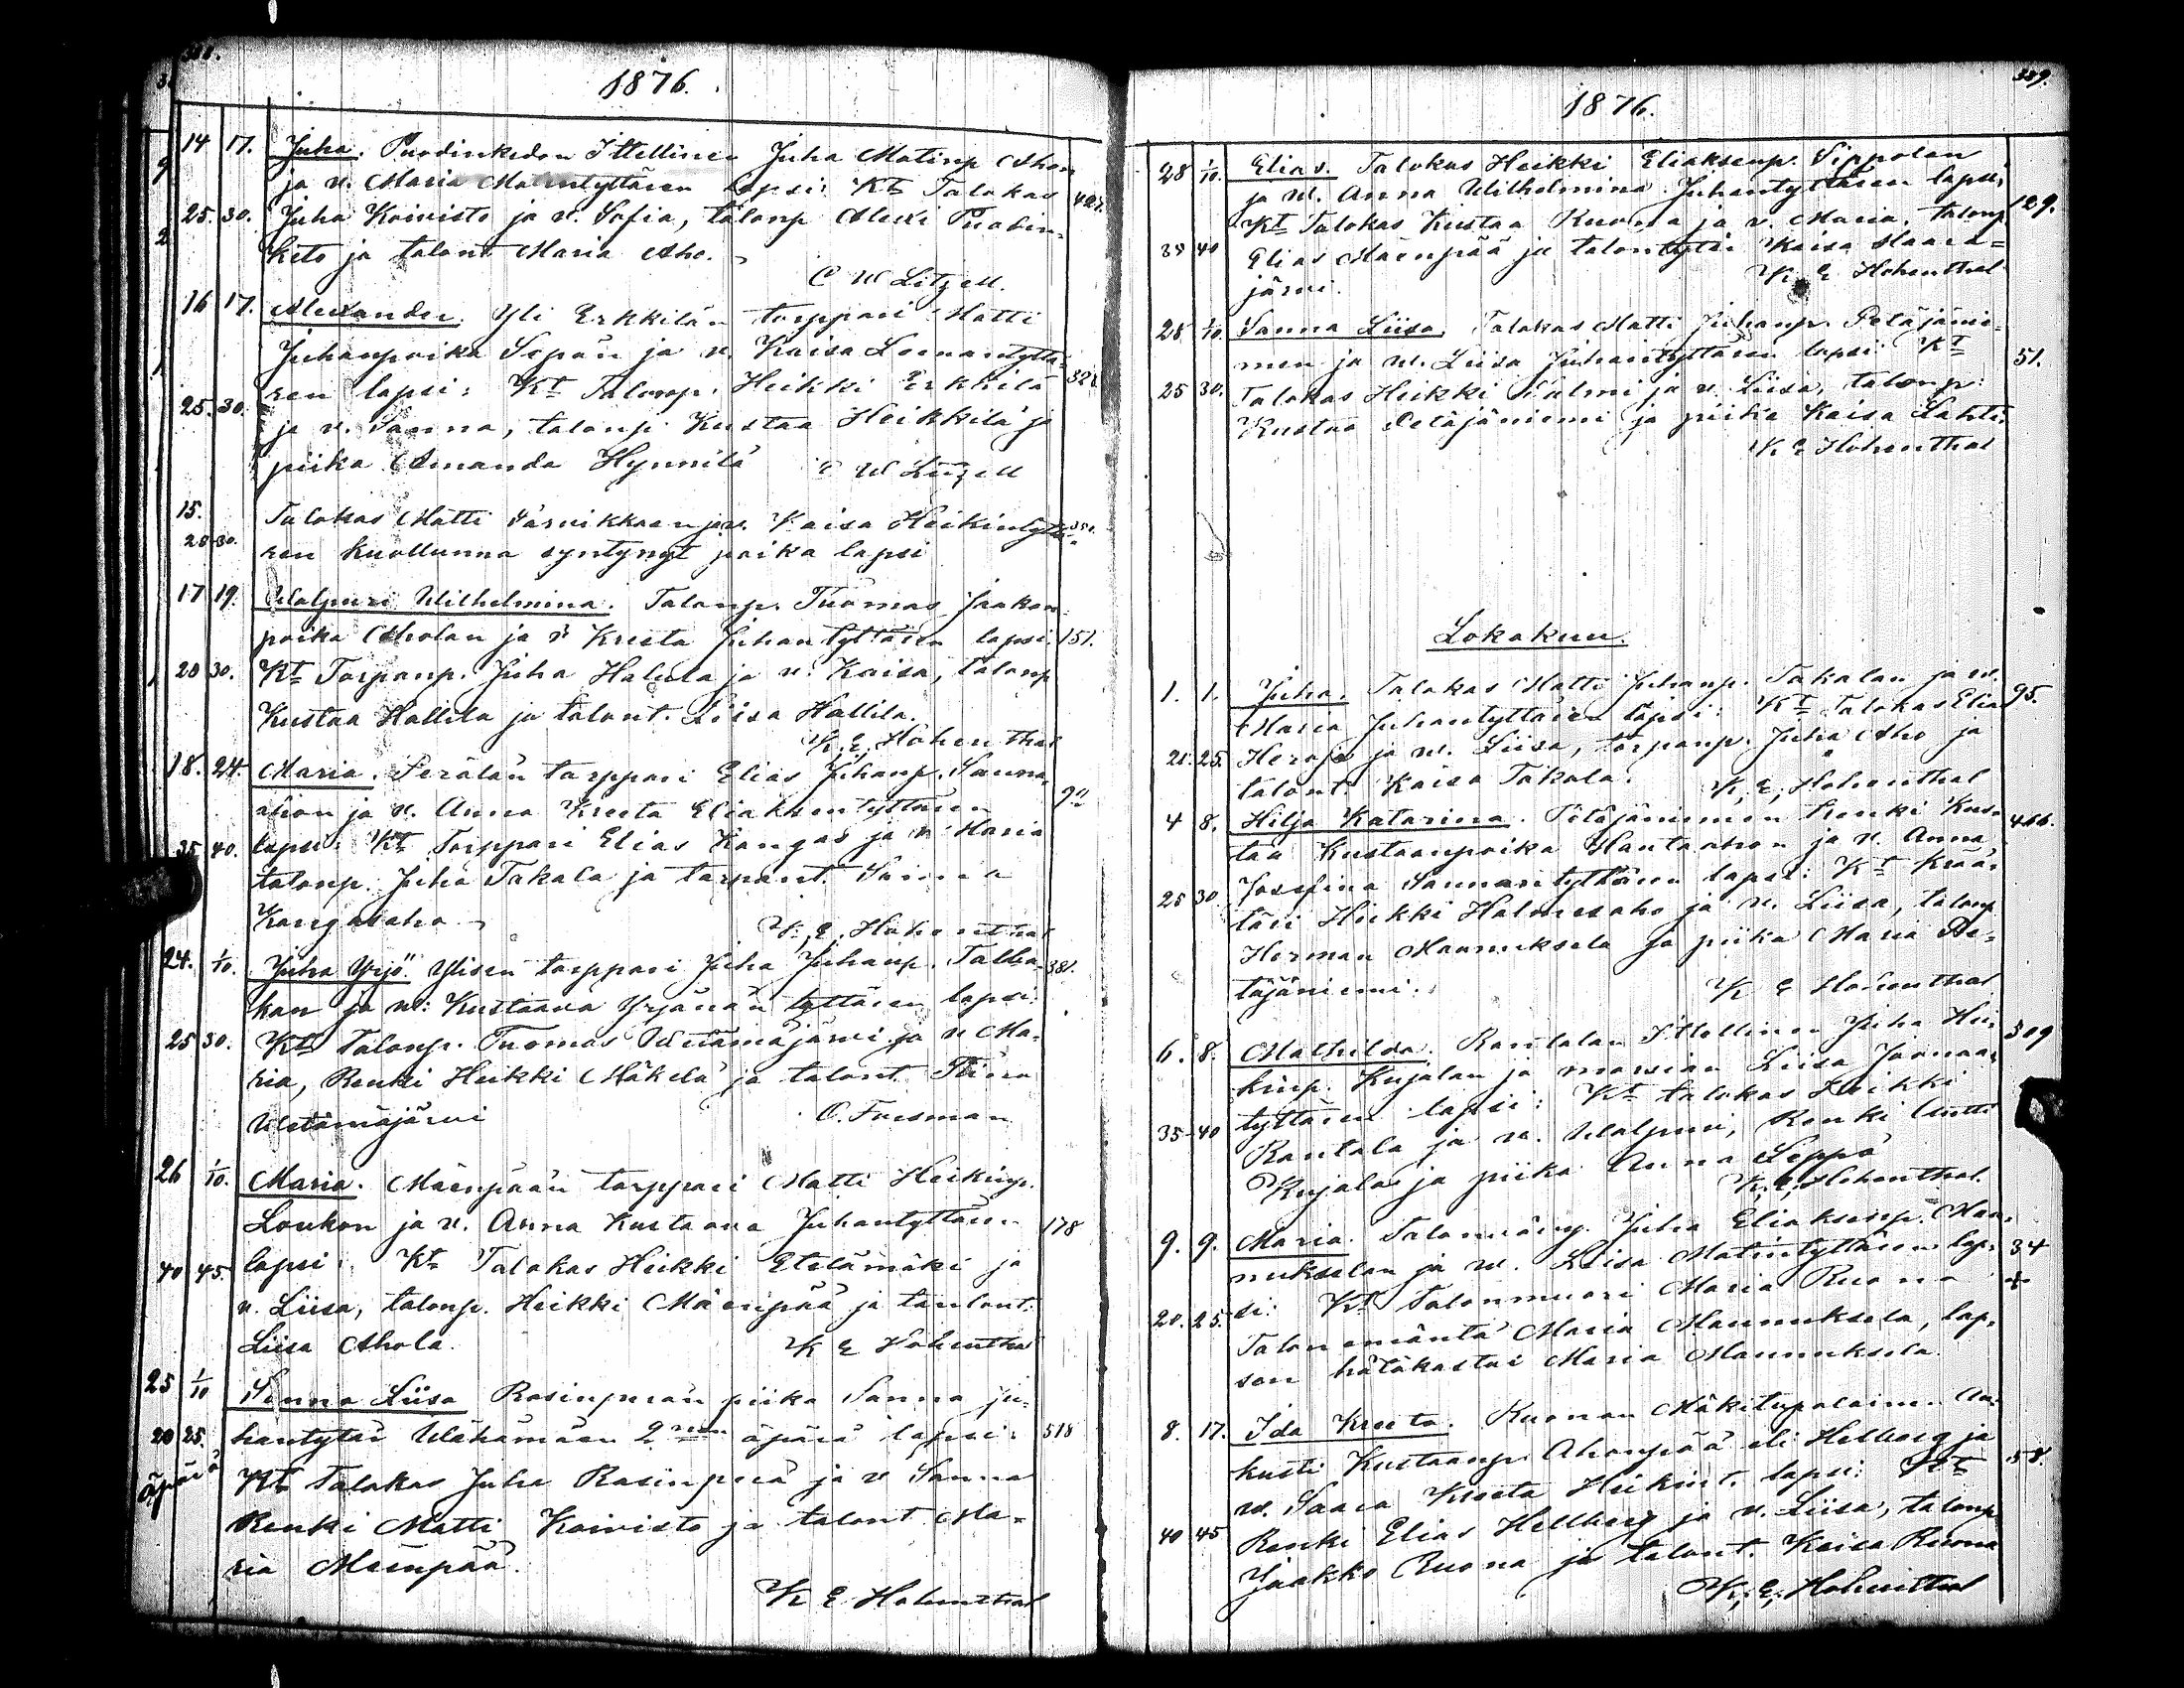 1876.
14 17. Juha. Puodinkedon Ittellinen Juha Matinp Ahon
ja v. Maria Matintyttären lapsi: Kt Talokas
25. 30. Juha Koivisto ja v. Sofia, talonp Alexi Puodin-
keto ja talont Maria Aho.
C W Litzell.
16 17. Alexander. Yli Erkkilän torppari Matti
Juhanpoika Sepän ja v. Kaisa Leenantyttä-
ren lapsi: Kt Talonp. Heikki Erkkilä
25. 30. ja v. Sanna, talonp. Kustaa Heikkilä ja
piika Amanda Hynnilä C W Litzell
15. Talokas Matti Särvikkaan ja v. Kaisa Heikintyttä-
20 30. ren kuollunna syntynyt poika lapsi
17 19. Walpuri Wilhelmina. Talonp. Tuomas Jaakon-
poika Aholan ja v Kreeta Juhantyttären lapsi. 151.
20 30. Kt Torpanp. Juha Halula ja v. Kaisa, talonp
Kustaa Hallila ja talont. Liisa Hallila.
K. E. Hohenthal
18. 24. Maria. Perälän torppari Elias Juhanp. Sauna-
ahon ja v. Anna Kreeta Eliaksentyttären
35 40. lapsi: Kt Torppari Elias Kangas ja v Maria
talonp. Juha Takala ja torpant. Sanna
Kangasaho
K. E. Hohenthal
24. 1/10. Juha Yrjö. Ylisen torppari Juha Juhanp. Talba- 381.
kan ja v: Kustaava Yrjänän tyttären lapsi:
25 30. Kt talonp. Tuomas Wetämäjärvi ja v Ma-
ria, Renki Heikki Mäkelä ja talont Tiina
Wetämäjärvi O. Forsman
26 1/10. Maria. Mäenpään torppari Matti Heikinp.
Loukon ja v. Anna Kustaava Juhantyttären 178
40 45. lapsi: Kt Talokas Heikki Etelämäki ja
v. Liisa, talonp. Heikki Mäenpää ja taulont.
Liisa Ahola. K E Hohenthal
25 1/10 Sanna Liisa Rasinperän piika Sanna Ju-
20 25. hantytär Wähämäen 2nen äpärä lapsi: 518
äpärä Kt Talokas Juha Rasinperä ja v Sanna
Renki Matti Koivisto ja talont Ma-
ria Mäenpää.
K E Hohenthal
1876.
28 1/10. Elias. Talokas Heikki Eliaksenp. Sippolan
ja W. Anna Wilhelmina Juhantyttären lapsi,
Kt Talokas Kustaa Ruona ja v. Maria, talonp. 129.
35 40 Elias Mäenpää ja talontytär Kaisa Haara-
järvi. K E Hohenthal
28 1/10. Sanna Liisa. Talokas Matti Juhanp. Petäjänie-
men ja w. Liisa Juhantyttären lapsi: Kt 51.
25 30. Talokas Heikki Salmi ja v. Liisa, talonp:
Kustaa Petäjäniemi ja piika Kaisa Lahti
K E Hohenthal
Lokakuu.
1. 1. Juha. Talokas Matti Juhanp. Takalan ja w.
Maria Juhantyttären lapsi: Kt Talokas Elia 95.
21. 25. Heroja ja w. Liisa, torpanp. Juha Aho ja
talont. Kaisa Takala. K, E, Hohenthal
4 8. Hilja Katarina. Petäjäniemen Renki Kus-
taa Kustaanpoika Hautaahon ja v. Anna 466.
Josefina Sannantyttären lapsi: Kt Krää-
25 30. täri Heikki Holmesaho ja v. Liisa, talonp
Herman Mannuksela ja piika Maria Pe-
täjäniemi. K E Hohenthal
6. 8. Mathilda. Rantalan Ittellinen Juha Hei- 309
kinp. Kujalan ja morsian Liisa Joonaan
tyttären lapsi: Kt talokas Heikki
35 40 Rantala ja w. Walpuri, Renki Antti
Kujala ja piika Anna Seppä
K, E, Hohenthal.
9. 9. Maria. Talonwäwy. Juha Eliaksenp. Man-
nukselan ja w. Liisa Matintyttären lap- 34
si: Kt Talonmuori Maria Ruona +
20. 25. Talon emäntä Maria Mannuksela, lap-
sen hätäkastoi Maria Mannuksela.
8. 17. Ida Kreeta. Ruonan Mäkitupalainen Au-
kusti Kustaanp. Ahonpää eli Hellberg ja 58.
w. Saara Kreeta Heikint. lapsi: Kt
40 45 Renki Elias Hellberg ja v. Liisa, talonp
Jaakko Ruona ja talont. Kaisa Ruona
K, E, Hohenthal